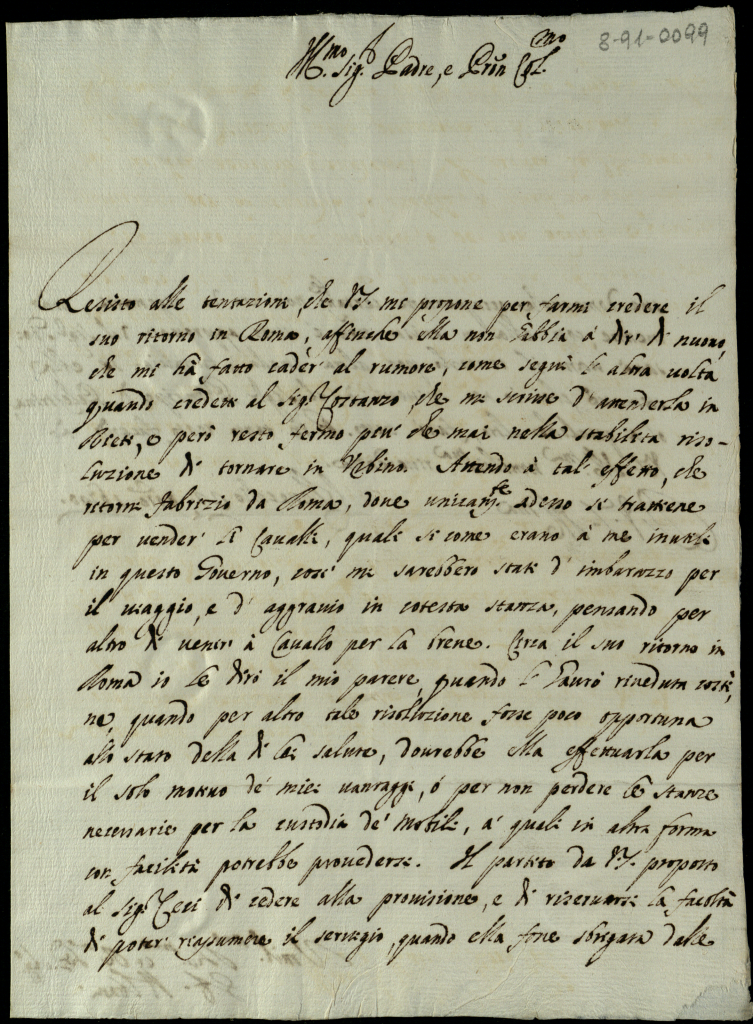 8-91-0099
Ill.mo Sig.r Padre, e Pron Col.mo
Resisto alle tentazioni, che V.S. mi propone per farmi credere il
suo ritorno in Roma, affinche ella non habbia à dir' di nuovo,
che mi hà fatto cader' al rumore, come seguì l'altra volta
quando credetti al Sig.r Costanzo, che mi scrisse d'attenderla in
Rieti, e però resto fermo più che mai nella stabilita riso-
luzione di tornare in Urbino. Attendo à tal' effetto, che
ritorni Fabrizio da Roma, dove unicam.te adesso si trattiene
per vender' li Cavalli, quali si come erano à me inutili
in questo Governo, così mi sarebbero stati d'imbarazzo per
il viaggio, e d'aggravio in cotesta stanza, pensando per
altro di venir' à Cavallo per la breve. Circa il suo ritorno in
Roma io le dirò il mio parere, quando l'haurò riveduta costì,
ne, quando per altro tale risoluzione fosse poco opportuna
allo stato della di lei salute, dovrebbe ella effettuarla per
il solo motivo de' miei vantaggi, ò per non perdere le stanze
necessarie per la custodia de' mobili, a' quali in altra forma
con facilità potrebbe provedersi. Il partito da V.S. proposto
al Sig.r Ceci di cedere alla provisione, e di riservarsi la facoltà
di poter' reassumere il servigio, quando ella fosse sbrigata dalle